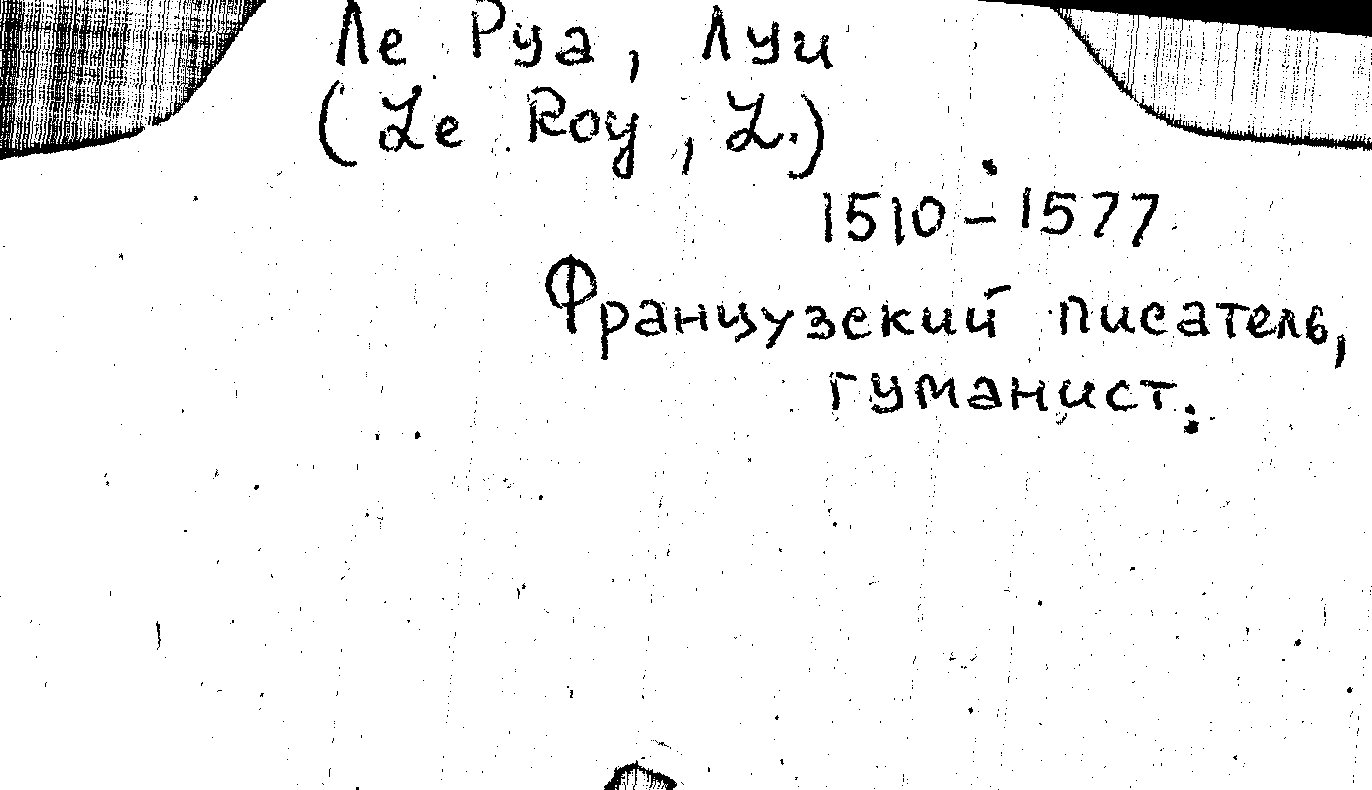 Ле Руа, Луи
(Le Roy, L.)
1510-1577
Французский писатель,
гуманист.